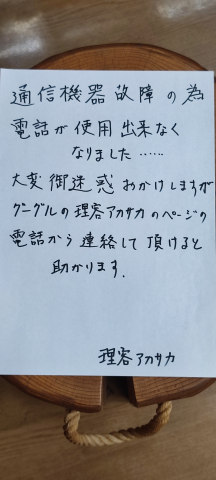 通信機器故障の為
電話が使用出来なく
なりました……
大変御迷惑おかけしますが
グーグルの理容アカサカのページの
電話から連絡して頂けると
助かります.
理容アカサカ